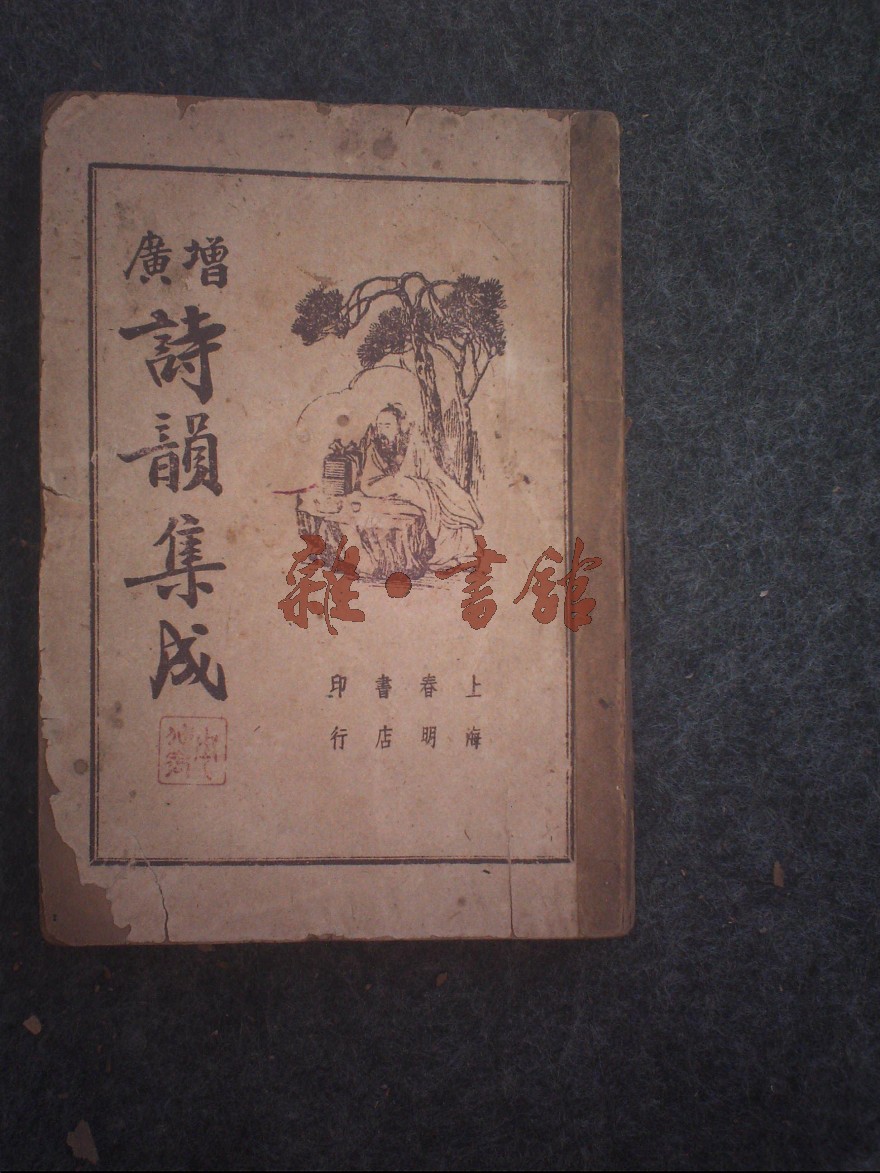 增廣
詩韻集成
上海
春明
書店
印行
雜·書館